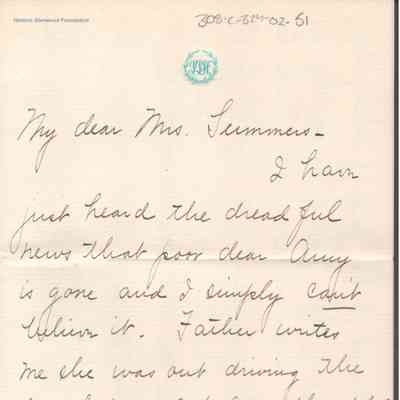 Historic Glenwood Foundation
My dear Mrs. Summers-
I have
just heard the dreadful
news that poor dear Amy
is gone and I simply can't
believe it. Father writes
me she was out driving the